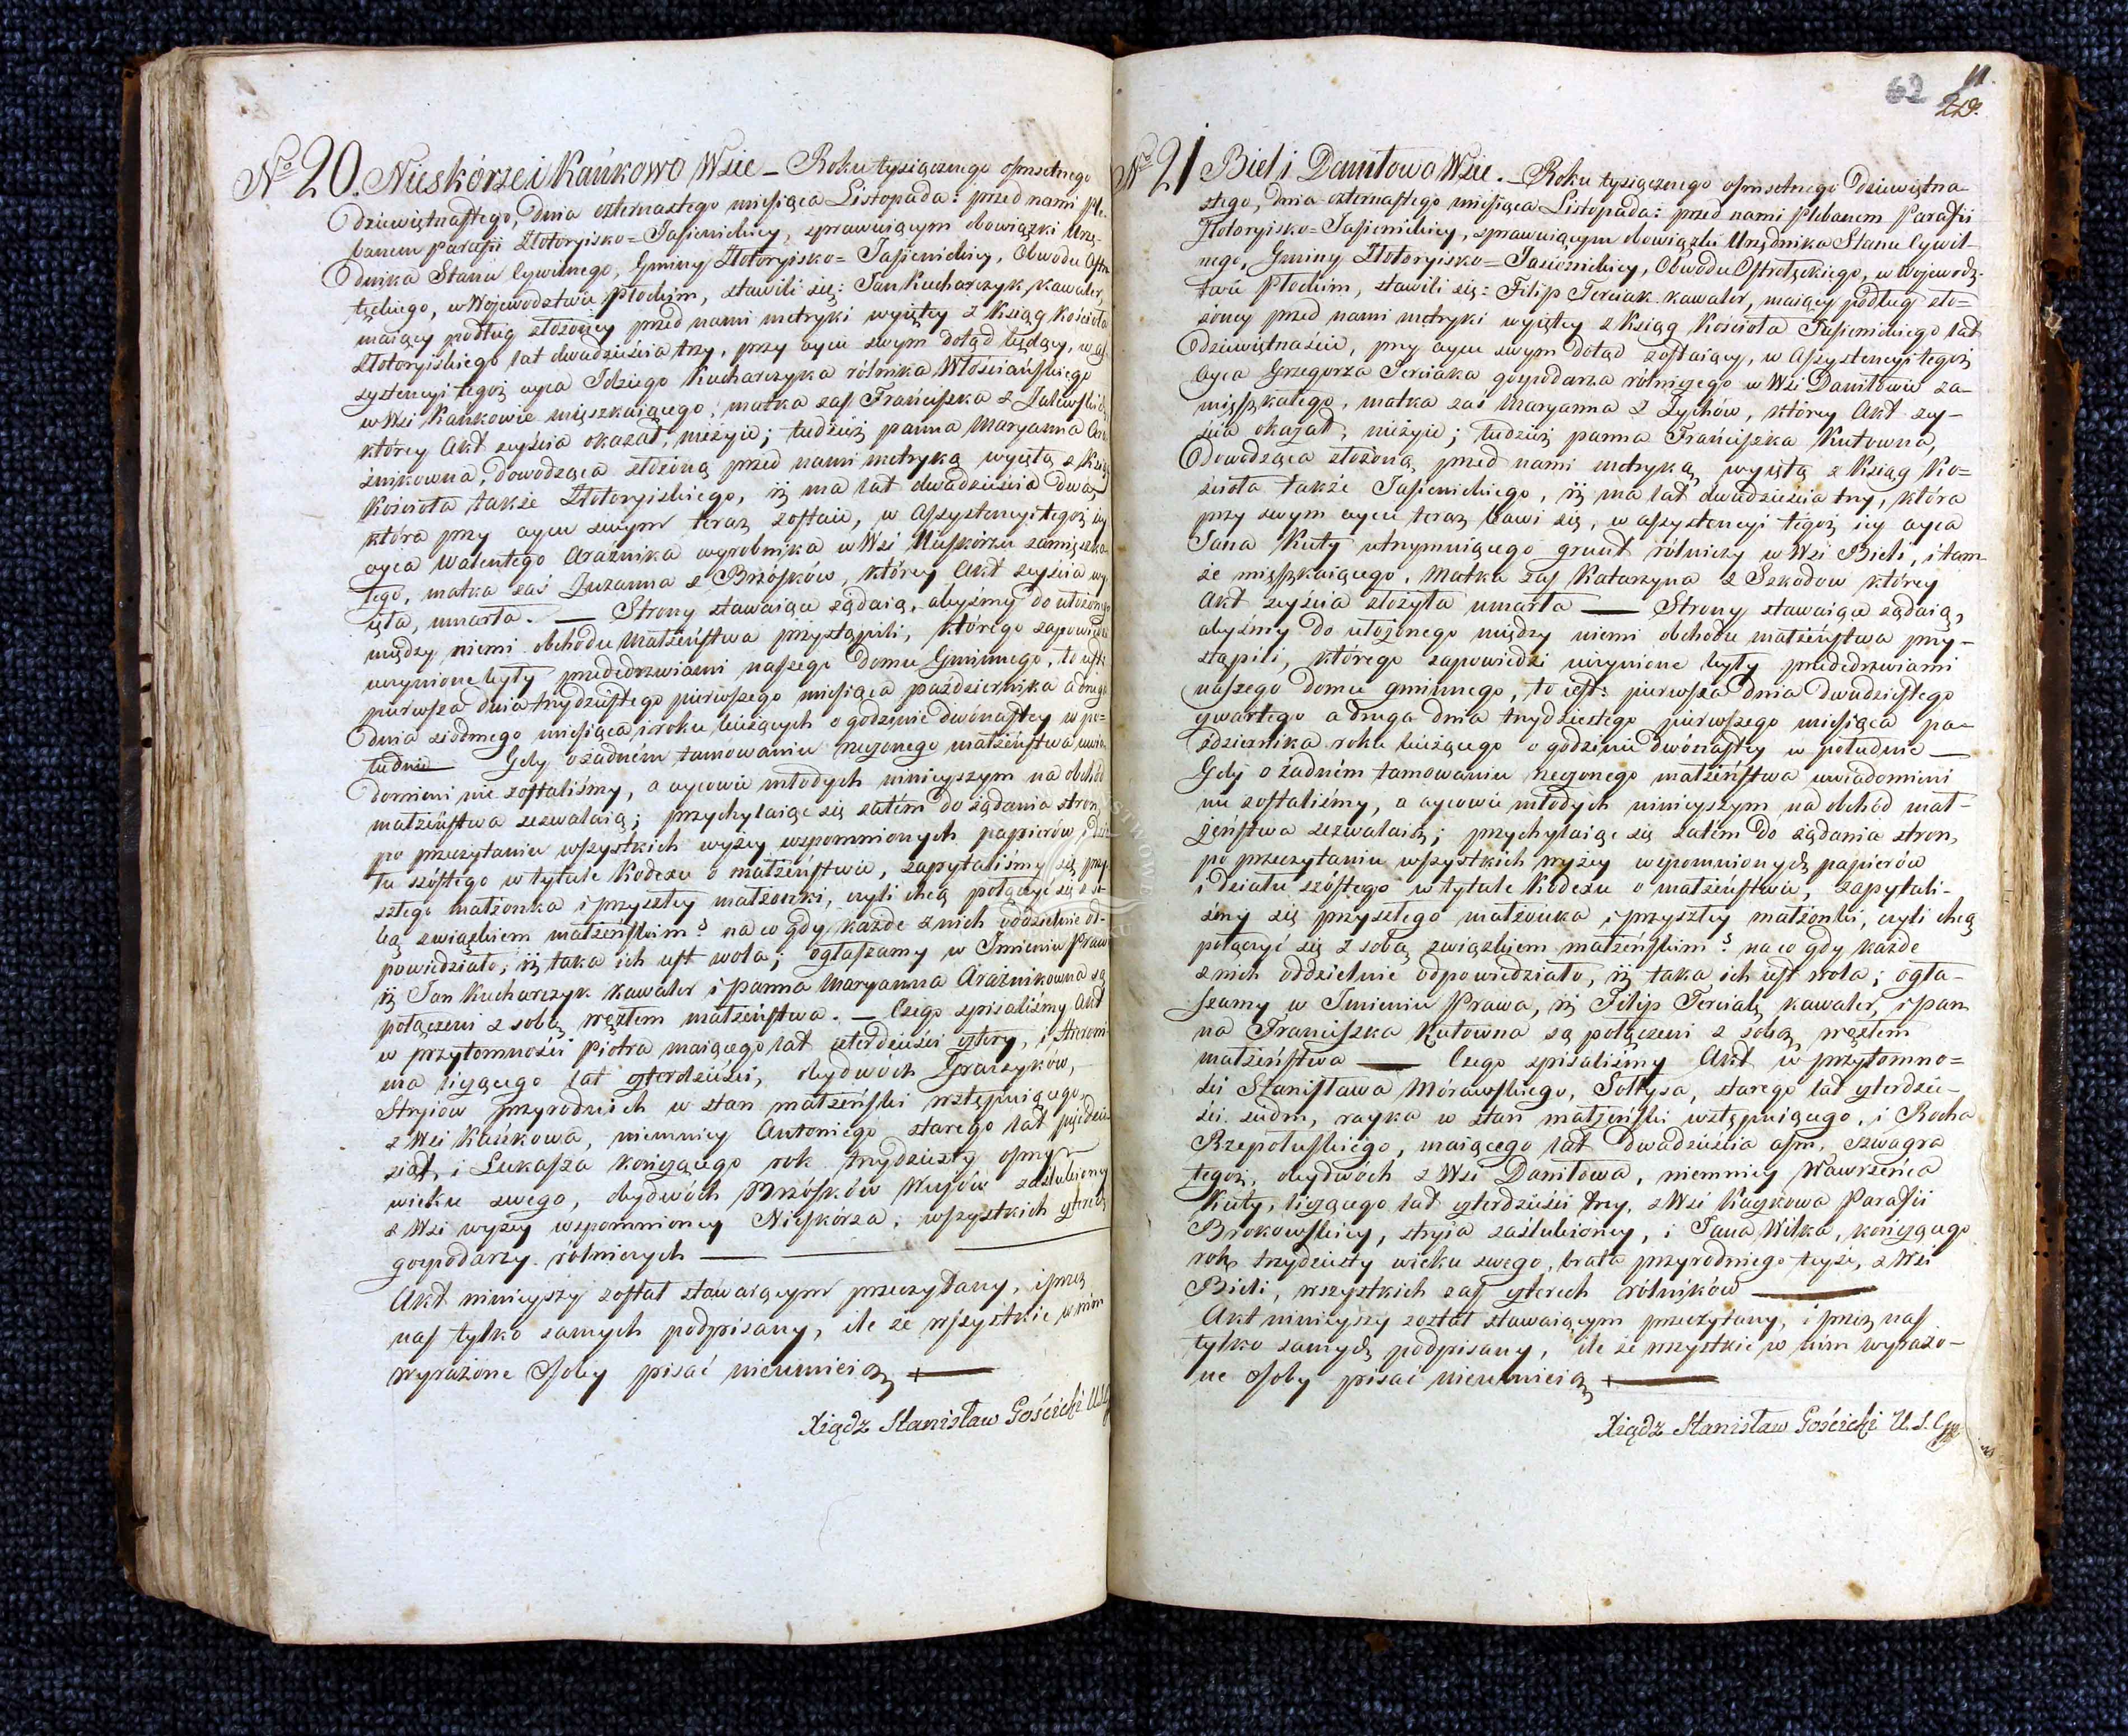 Nº 20. Nieskórze i Kańkowo Wsie – Roku tysiącznego ofmsetnego
dziewiętnaftego, dnia czternastego miefiąca Listopada: przed nami Ple-
banem Parafii Złotoryisko=Jafienickiey, sprawuiącym obowiązki Urzę-
dnika Stanu Cywilnego, Gminy Złotoryisko=Jafienickiey, Obwodu Oftro-
łęckiego, w Wojewodztwie Płockim, stawili się: Jan Kucharczyk, kawaler,
maiący podług złożoney przed nami metryki wyiętey z Ksiąg Kościoła
Złotoryiskiego lat dwadzieścia trzy, przy oycu swym dotąd będący, w as-
systencyi tegoż oyca Idziego Kucharczyka rólnika Włościańskiego
w Wsi Kańkowie mięszkaiącego, matka zaf Franciszka z Zalewskich
którey Akt zeyścia okazał, nieżyie; tudzież panna Maryanna Ara-
źnikowna, dowodząca złożoną przed nami metryką wyiętą z Ksiąg
Kościoła także Złotoryiskiego, iż ma lat dwadzieścia dwa,
która przy oycu swym teraz zoftaie, w Assystencyi tegoż iey
oyca Walentego Araźnika wyrobnika w Wsi Nieskórzu zamięszka-
łego, matka zaś Zuzanna z Brzósków, którey Akt zeyścia wy-
ięła, umarła. — Strony stawaiące żądaią, abyśmy do ułożonego
między niemi obchodu Małżeństwa przystąpili, którego zapowiedzi
uczynione były przededrzwiami naszego Domu Gminnego, to ieft:
pierwsza dnia trzydzieftego pierwszego miefiąca października a druga
dnia siódmego miefiąca i roku bieżących o godzinie dwónaftey w po-
łudnie — Gdy o żadném tamowaniu rzeczonego małżeńftwa uwia-
domieni nie zoftaliśmy, a oycowie młodych ninieyszym na obchód
małżeńftwa zezwalaią; przychylaiąc się zatém do żądania stron,
po przeczytaniu wszystkich wyżey wspomnionych papierów i dzia-
łu szóftego w tytule Kodexu o małżeńftwie, zapytaliśmy się przy-
szłego małżonka i przyszłey małżonki, czyli chcą połączyć się z so-
bą związkiem małżeńskim? na co gdy każde z nich oddzielnie od-
powiedziało, iż taka ich ieft wola; ogłaszamy w Imieniu Prawa
iż Jan Kucharczyk kawaler i panna Maryanna Araźnikowna są
połączeni z sobą węzłem małżeńftwa. — Czego spisaliśmy Akt
w przytomności Piotra maiącego lat czterdzieści cztery, i Hieroni-
ma liczącego lat czterdzieści, obydwóch Graczyków,
Stryiow przyrodnich w stan małżeński wstępuiącego,
z Wsi Kańkowa, niemniey Antoniego starego lat pięćdzie-
siąt, i Łukasza kończącego rok trzydziesty ofmy
wieku swego, obydwóch Brzósków Wuiów zaślubioney
z Wsi wyżey wspomnioney Nieskórza, wszystkich czterech
gospodarzy rólniczych —
Akt ninieyszy zoftał stawaiącym przeczytany, i przez
naf tylko samych podpisany, ile że wszystkie w nim
wyrażone Ofoby pisać nieumieią +—
Xiądz Stanisław Gościcki U.S.C.
62 11.
Nº 21 Biel i Daniłowo Wsie. – Roku tysiącznego ofmsetnego dziewiętna-
stego, dnia czternaftego miefiąca Listopada: przed nami Plebanem Parafii
Złotoryisko=Jafienickiey, sprawuiącym obowiązki Urzędnika Stanu Cywil-
nego, Gminy Złotoryisko=Jasienickiey, Obwodu Oftrołęckiego, w Wojewodz-
twie Płockim, stawili się: Filip Terciak kawaler, maiący podług zło=
żoney przed nami metryki wyiętey z Ksiąg Kościoła Jafienickiego lat
dziewiętnaście, przy oycu swym dotąd zoftaiący, w Assystencyi tegoż
Oyca Grzegorza Terciaka gospodarza rólniczego w Wsi Daniłowie za-
mięszkałego, matka zaś Maryanna z Zychów, którey Akt zey-
ścia okazał, nieżyie; tudzież panna Franciszka Kutowna,
Dowodząca złożoną przed nami metryką wyiętą z Ksiąg Ko=
ścioła także Jafienickiego, iż ma lat dwadzieścia trzy, która
przy swym oycu teraz bawi się, w assystencyi tegoż iey oyca
Jana Kuty utrzymuiącego grunt rólniczy w Wsi Bieli, i tam-
że mięszkaiącego. Matka zaf Katarzyna z Szkodow którey
Akt zeyścia złożyła umarła — Strony stawaiące żądaią,
abyśmy do ułożonego między niemi obchodu małżeńftwa przy-
stąpili, którego zapowiedzi uczynione były przededrzwiami
naszego domu gminnego, to ieft: pierwsza dnia dwudzieftego
czwartego a druga dnia trzydziestego pierwszego miefiąca pa-
ździernika roku bieżącego o godzinie dwónaftey w południe —
Gdy o żadném tamowaniu rzeczonego małżeńftwa uwiadomieni
nie zoftaliśmy, a oycowie młodych ninieyszym na obchód mał-
żeńftwa zezwalaią; przychylaiąc się zatém do żądania stron,
po przeczytaniu wszystkich wyżey wspomnionych papierów
i działu szóftego w tytule Kodexu o małżeńftwie, zapytali-
śmy się przyszłego małżonka i przyszłey małżonki, czyli chcą
połączyć się z sobą związkiem małżeńskim? na co gdy każde
z nich oddzielnie odpowiedziało, iż taka ich ieft wola; ogła-
szamy w Imieniu Prawa, iż Filip Terciak, kawaler, i pan-
na Franciszka Kutowna są połączeni z sobą węzłem
małżeńftwa — Czego spisaliśmy Akt w przytomno=
ści Stanisława Mórawskiego, Sołtysa, starego lat czterdzie-
ści siedm, rayka w stan małżeński wstępuiącego, i Rocha
Rzepoluskiego, maiącego lat dwadzieścia ofm, szwagra
tegoż, obydwóch z Wsi Daniłowa, niemniey Wawrzeńca
Kuty, liczącego lat czterdzieści trzy, z Wsi Kaczkowa Parafii
Brokowskiey, stryia zaślubioney, i Jana Wilka, kończącego
rok trzydziesty wieku swego, brata przyrodniego teyże, z Wsi
Bieli, wszystkich zaf czterech rólników —
Akt ninieyszy został stawaiącym przeczytany, i przez naf
tylko samych podpisany, ile że wszystkie w nim wyrażo-
ne Ofoby pisać nieumieią +—
Xiądz Stanisław Gościcki U.S.C.